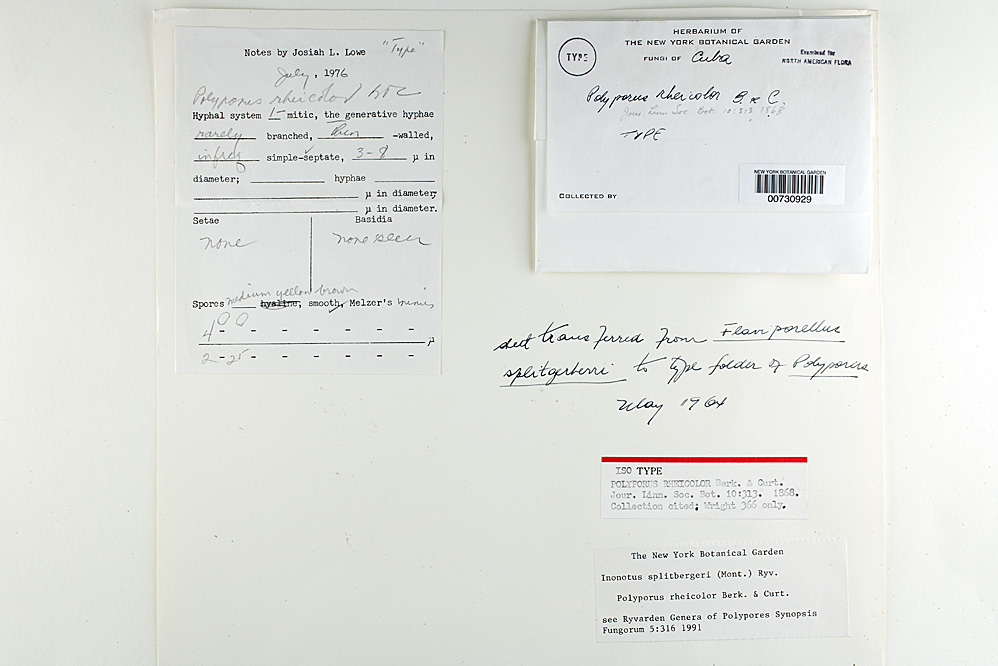 Notes by Josiah L. Lowe "Type"
July, 1976
Polyporus rheicolor B & C
Hyphal system 1-mitic, the generative hyphae
rarely branched, thin -walled,
infreq simple-septate, 3-8 µ in
diameter; hyphae
µ in diameter;
µ in diameter.
Setae Basidia
none none seen
medium yellow brown
Spores hyaline, smooth, Melzer's minus
4 - - - - - -
µ
2 - 2.5 - - - -
HERBARIUM OF
THE NEW YORK BOTANICAL GARDEN
TYPE
FUNGI OF Cuba
Examined for
NORTH AMERICAN FLORA
Polyporus rheicolor B. & C.
Jour. Linn. Soc. Bot. 10:313 1868
TYPE
NEW YORK BOTANICAL GARDEN
00730929
COLLECTED BY
transferred from Flaviporellus
splitgerberi to type folder of Polyporus
May 1964
ISO TYPE
POLYPORUS RHEICOLOR Berk. & Curt.
Jour. Linn. Soc. Bot. 10:313. 1868.
Collection cited; Wright 366 only.
The New York Botanical Garden
Inonotus splitbergeri (Mont.) Ryv.
Polyporus rheicolor Berk. & Curt.
see Ryvarden Genera of Polypores Synopsis
Fungorum 5:316 1991